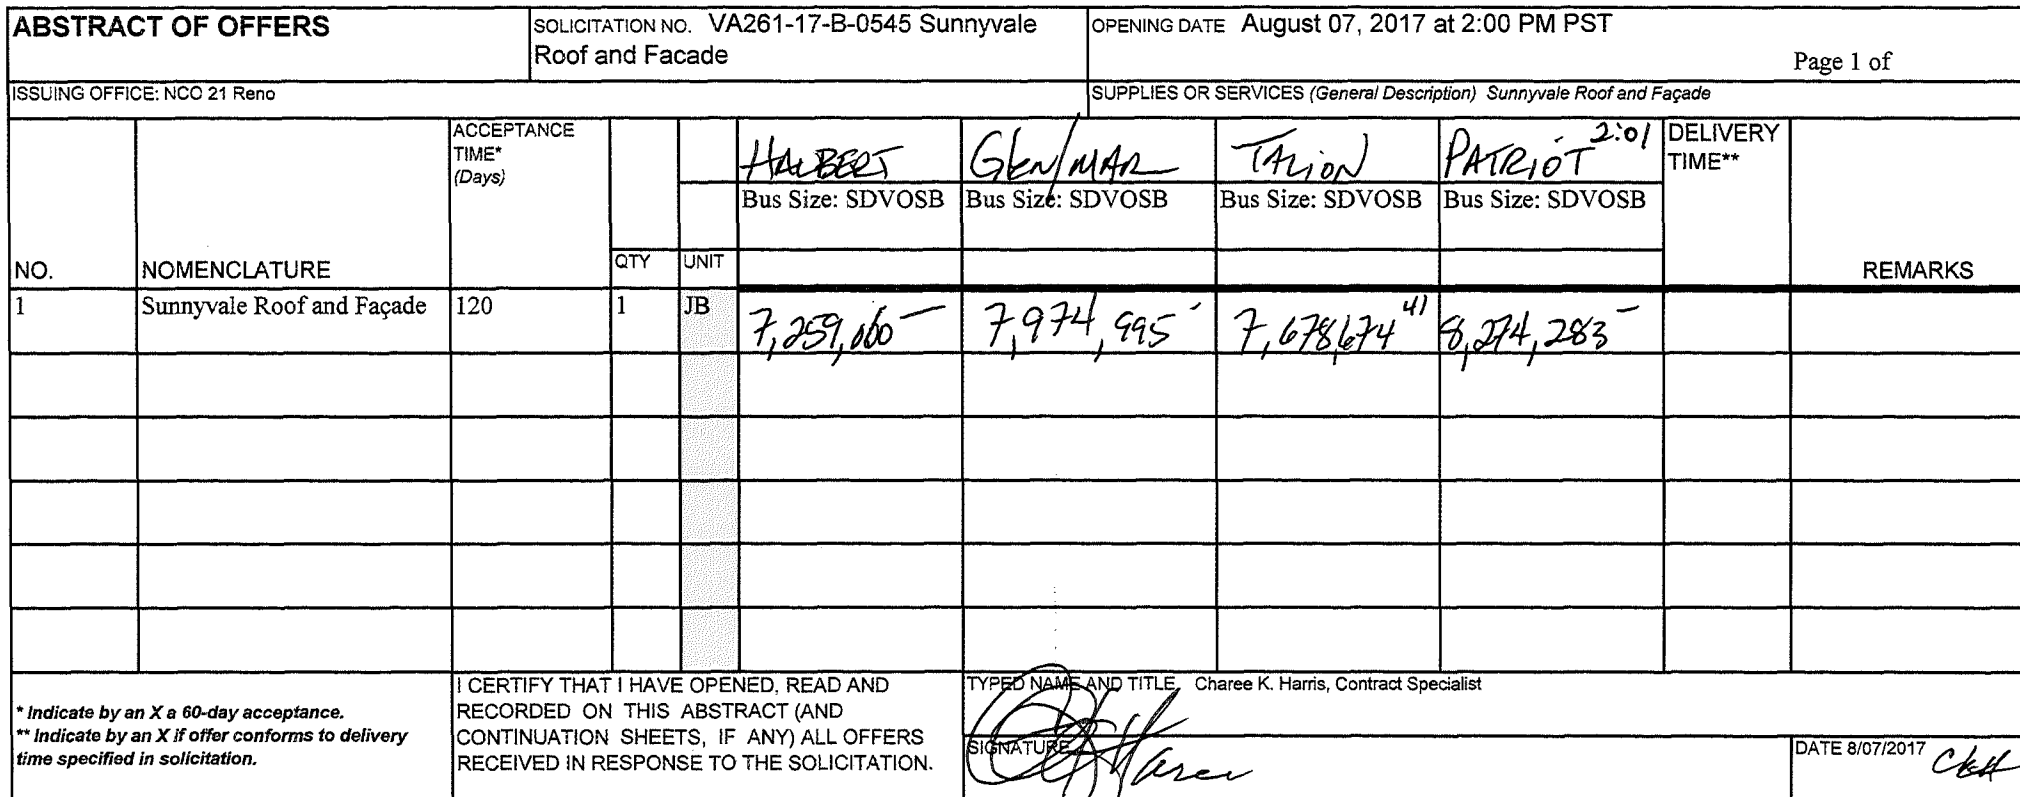 ABSTRACT OF OFFERS
SOLICITATION NO. VA261-17-B-0545 Sunnyvale
Roof and Facade
OPENING DATE August 07, 2017 at 2:00 PM PST
Page 1 of
ISSUING OFFICE: NCO 21 Reno
SUPPLIES OR SERVICES (General Description) Sunnyvale Roof and Façade
NO.
NOMENCLATURE
ACCEPTANCE
TIME*
(Days)
QTY
UNIT
HALBERT
Bus Size: SDVOSB
Glen/MAR
Bus Size: SDVOSB
TALION
Bus Size: SDVOSB
PATRIOT 2:01
Bus Size: SDVOSB
DELIVERY
TIME**
REMARKS
1
Sunnyvale Roof and Façade
120
1
JB
7,259,000 –
7,974,995 -
7,678,674 41
8,274,283 –
* Indicate by an X a 60-day acceptance.
** Indicate by an X if offer conforms to delivery
time specified in solicitation.
I CERTIFY THAT I HAVE OPENED, READ AND
RECORDED ON THIS ABSTRACT (AND
CONTINUATION SHEETS, IF ANY) ALL OFFERS
RECEIVED IN RESPONSE TO THE SOLICITATION.
TYPED NAME AND TITLE Charee K. Harris, Contract Specialist
SIGNATURE
DATE 8/07/2017